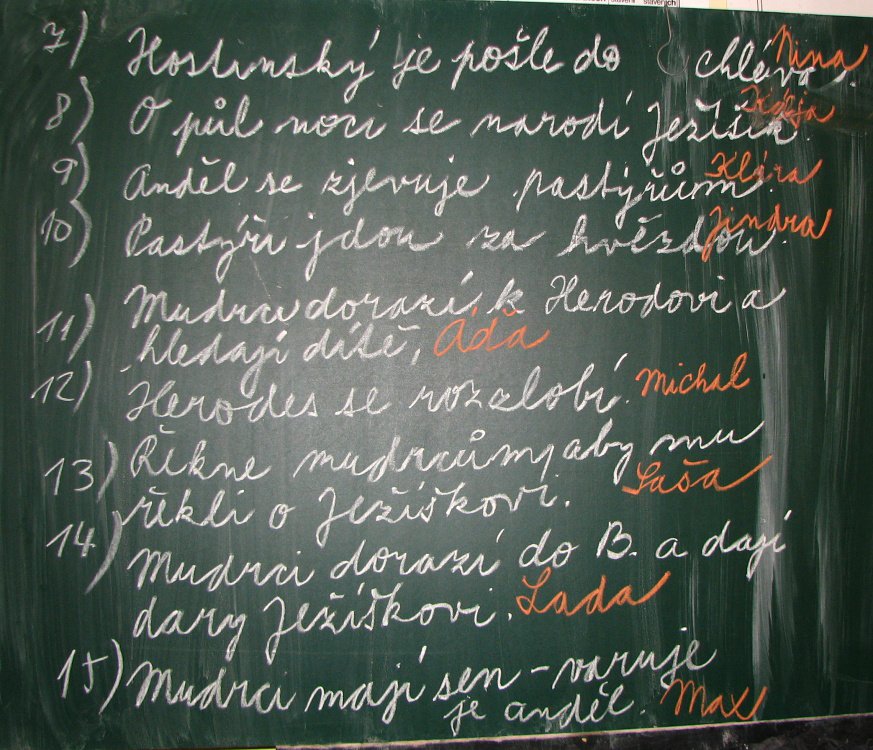 7) Hostinský je pošle do chléva. Nina
8) O půl noci se narodí Ježíšek.
9) Anděl se zjevuje pastýřům. Klára
10) Pastýři jdou za hvězdou. Jindra
11) Mudrci dorazí k Herodovi a
hledají dítě, Áďa
12) Herodes se rozzlobí. Michal
13) Řekne mudrcům, aby mu
řekli o Ježíškovi. Saša
14) Mudrci dorazí do B. a dají
dary Ježíškovi. Lada
15) Mudrci mají sen - varuje
je anděl. Max